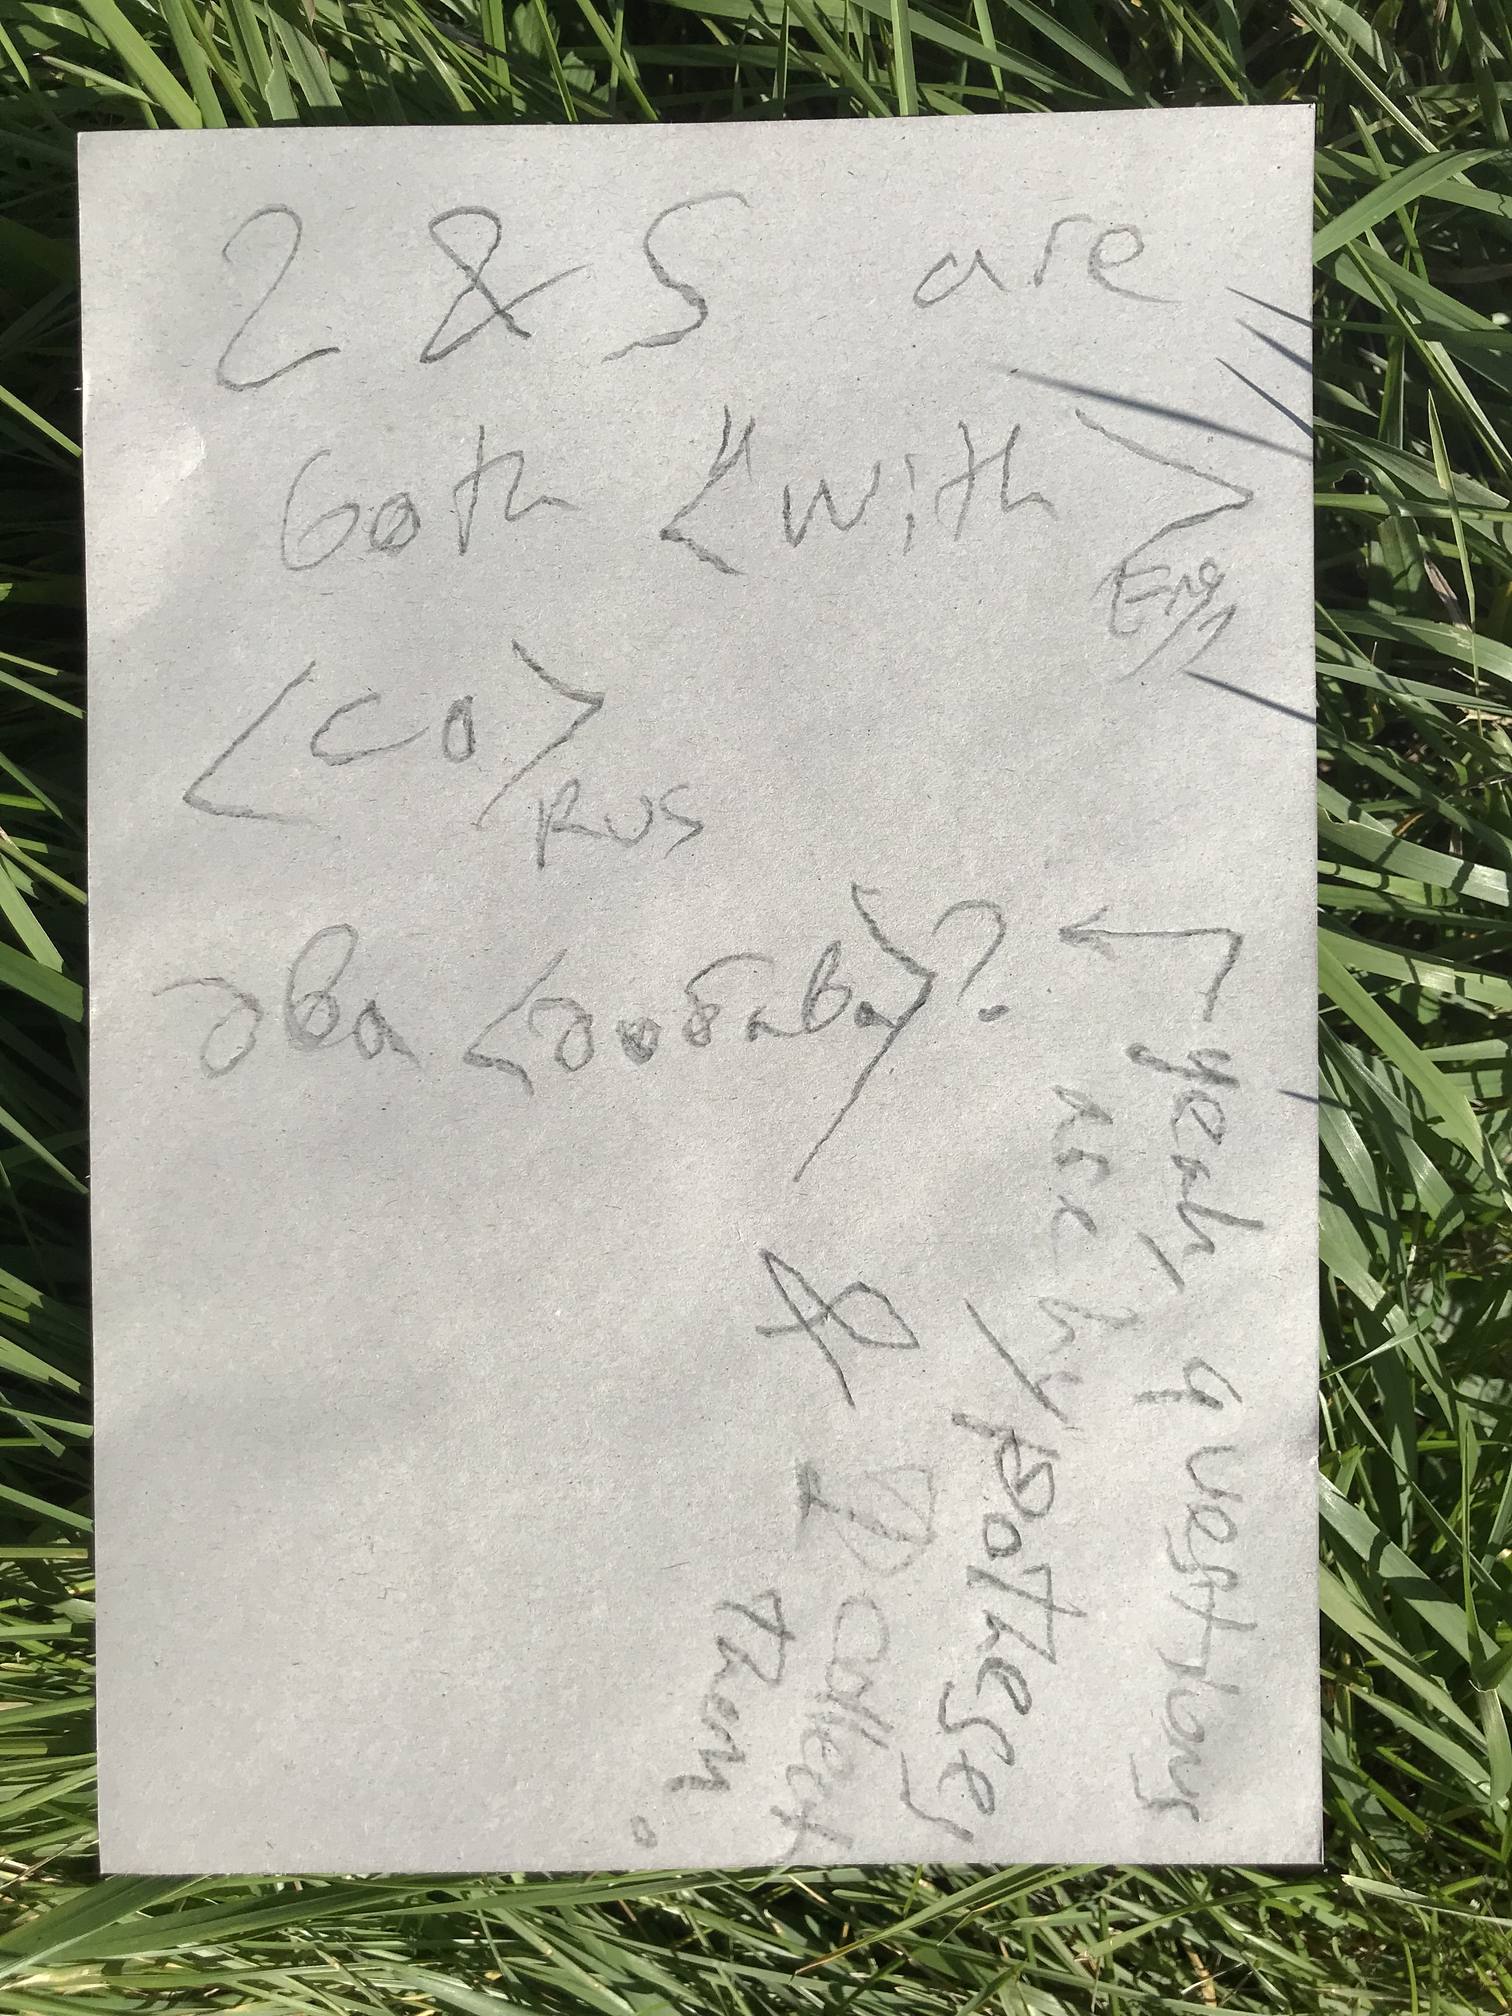 2 & 5 are
both <"with>Engl
<со>RUS
два <добавл>?
yeah, questions
are hy
potheses
& I collect
them.